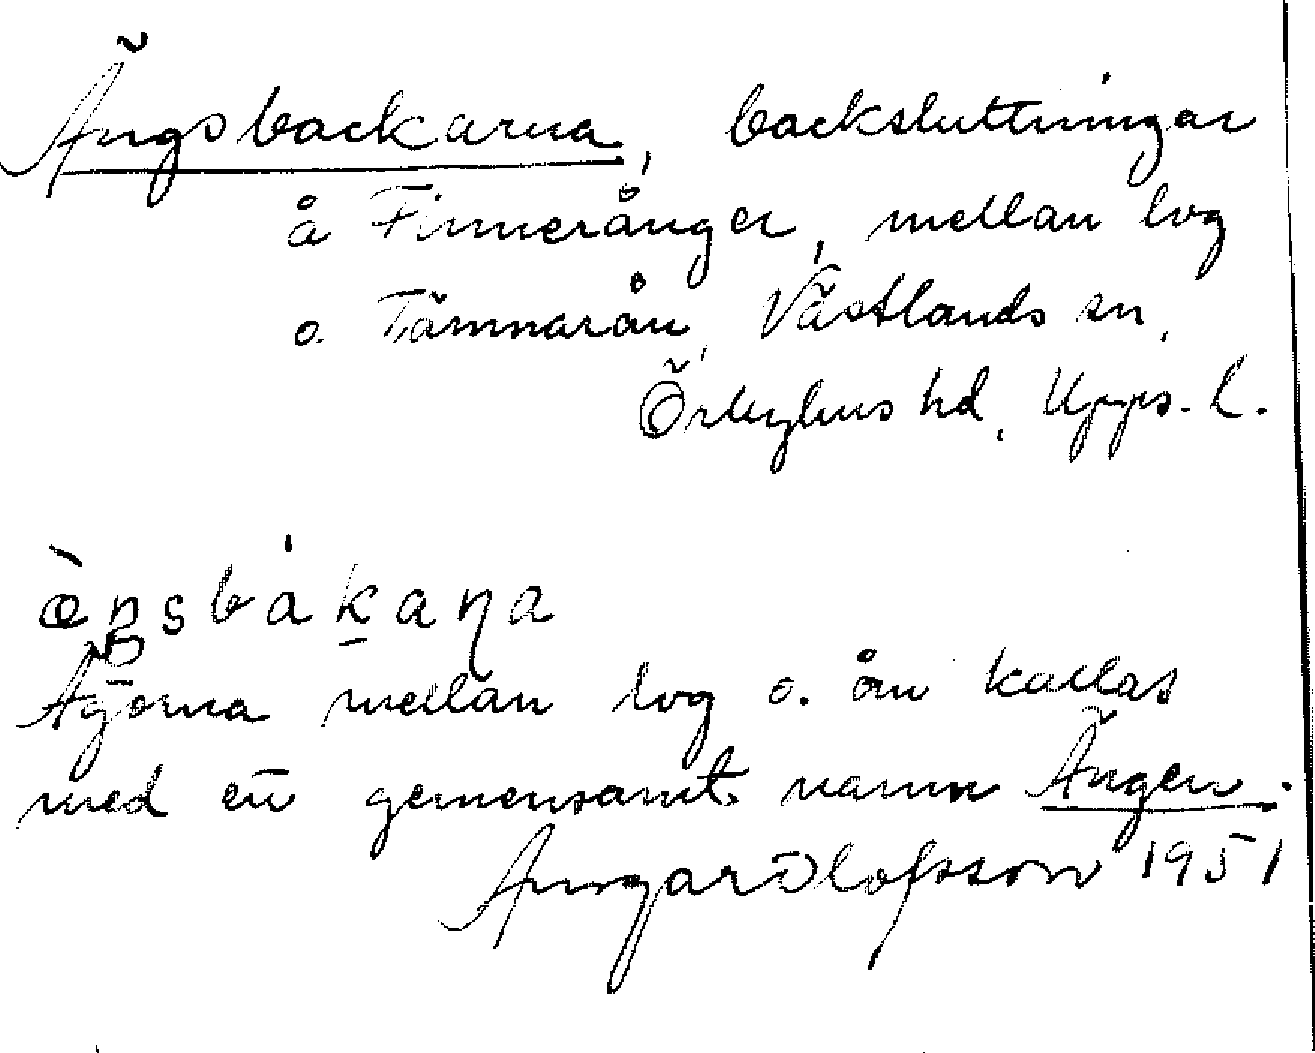 Ängsbackarna, backsluttningar
å Finneränger, mellan lvg
o. Tämnarån, Västlands sn,
Örbyhus hd, Upps. l.
Ägorna mellan lvg o. ån kallas
med ett gemensamt namn Ängen.
Ansgar Olofsson 1951